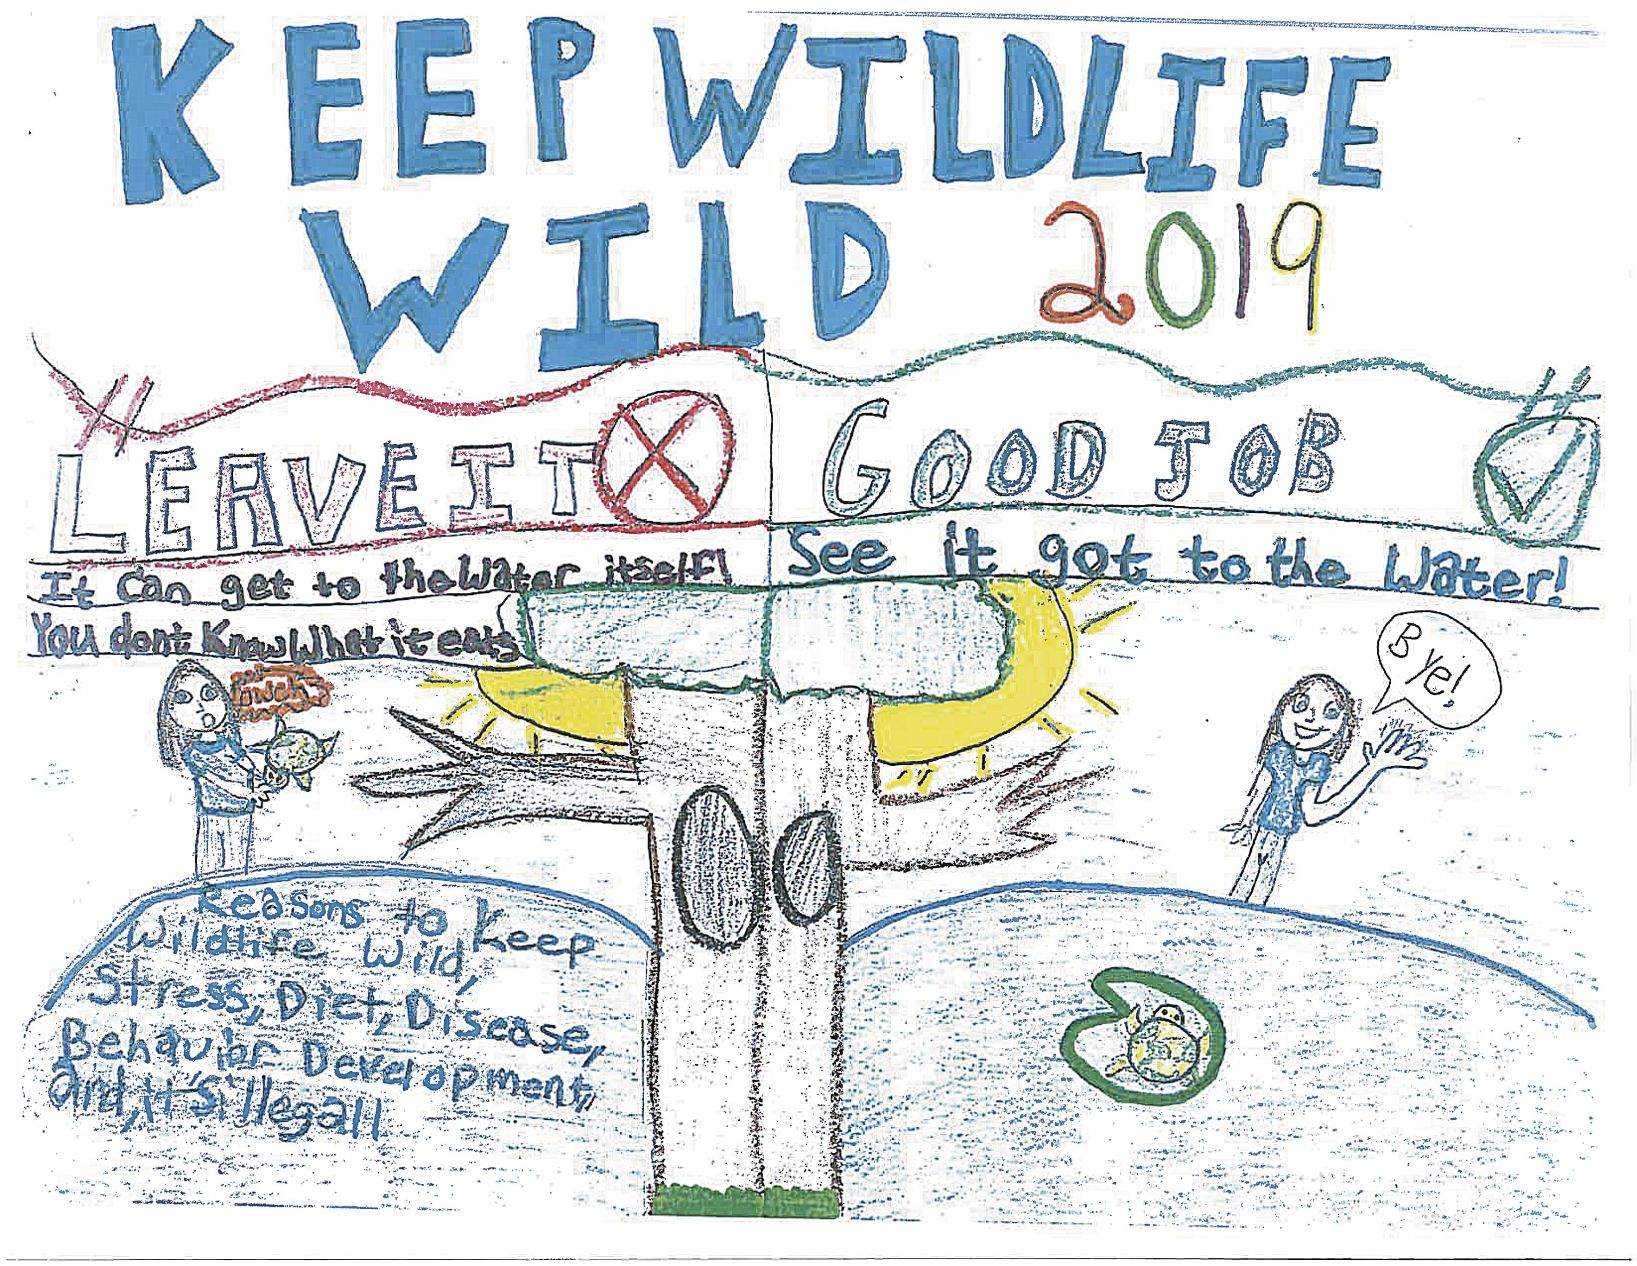 KEEP WILDLIFE
WILD 2019
LEAVE IT
It Can get to the Water itself!
You dont Know What it eats
GOOD JOB
See it got to the Water!
Bye!
Reasons to Keep
Wildlife Wild,
Stress, Diet, Disease,
Behavior Development,
and, it's illegal!